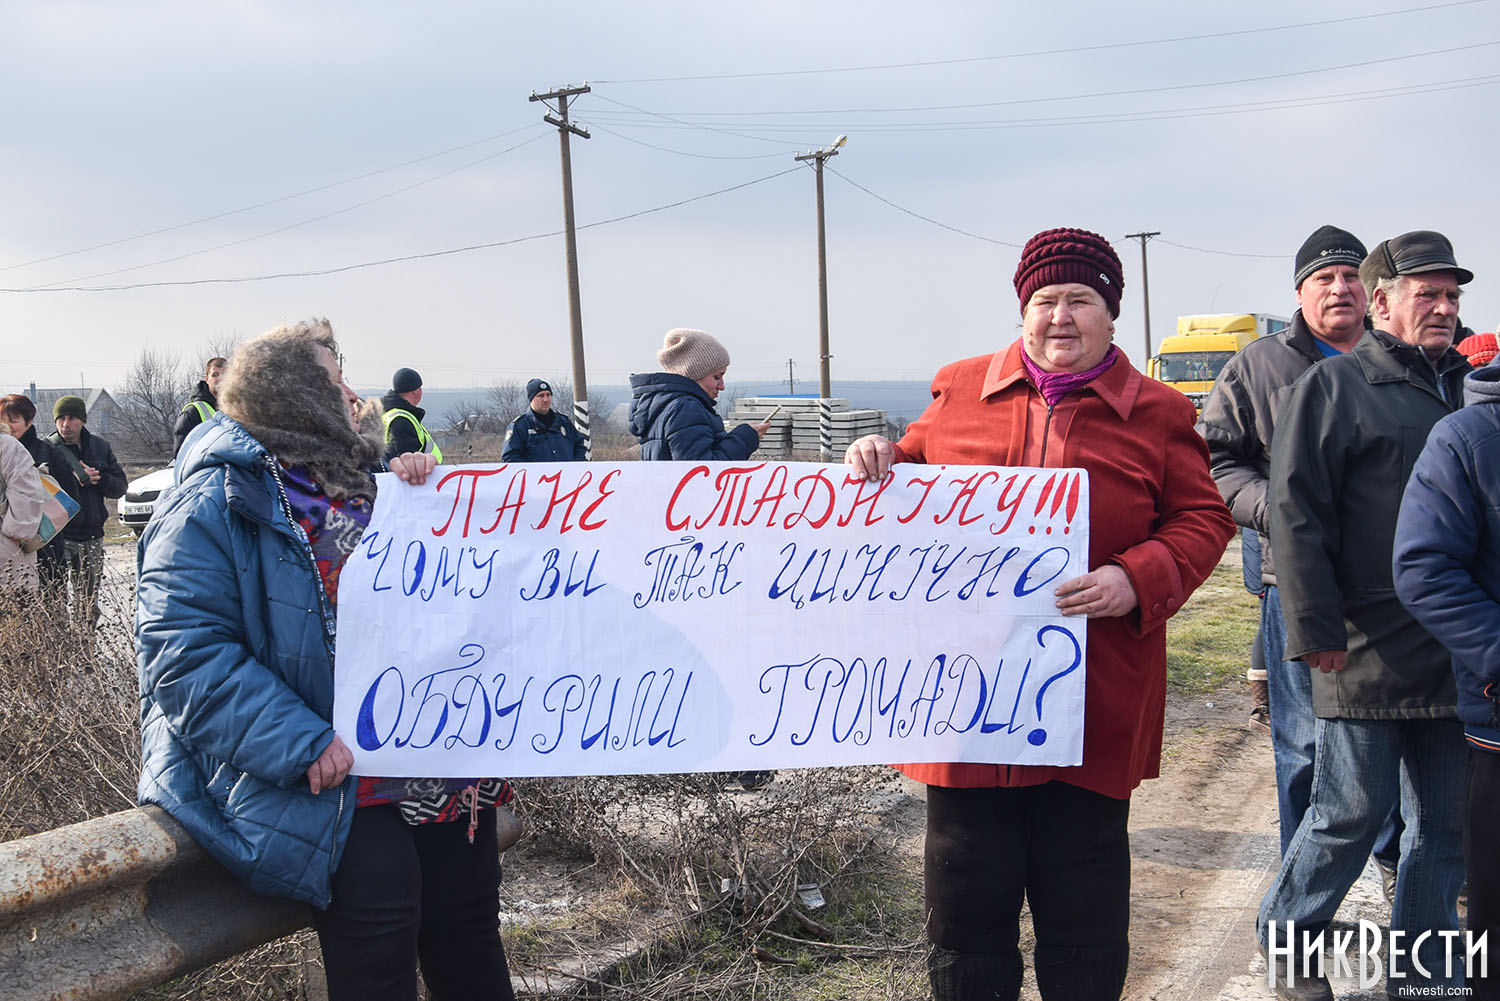 ПАНЕ СТАДНІКУ!!!
ЧОМУ ВИ ТАК ЦИНІЧНО
ОБДУРИЛИ ГРОМАДИ?
Columbia
НикВести
nikvesti.com